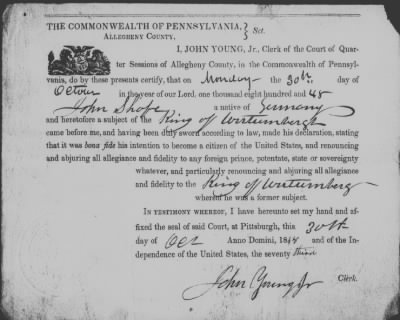 THE COMMONWEALTH OF PENNSYLVANIA,
ALLEGHENY COUNTY, } Sct.
I, JOHN YOUNG, Jr., Clerk of the Court of Quar-
ter Sessions of Allegheny County, in the Commonwealth of Pennsyl-
vania, do by these presents certify, that on Monday the 30th day of
October in the year of our Lord, one thousand eight hundred and 48
John Shope a native of Germany
and heretofore a subject of the King of Wirtumbergh
came before me, and having been duly sworn according to law, made his declaration, stating
that it was bona fide his intention to become a citizen of the United States, and renouncing
and abjuring all allegiance and fidelity to any foreign prince, potentate, state or sovereignty
whatever, and particularly renouncing and abjuring all allegiance
and fidelity to the King of Wirtumberg
whereof he was a former subject.
IN TESTIMONY WHEREOF, I have hereunto set my hand and
affixed the seal of said Court, at Pittsburgh, this 30th
day of Oct Anno Domini, 1848 and of the In-
dependence of the United States, the seventy third
John Young Jr Clerk.